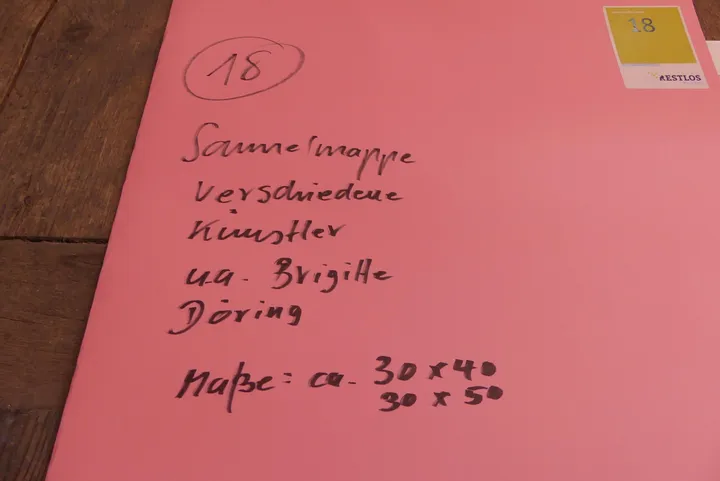 18
18
RESTLOS
Sammelmappe
Verschiedene
Künstler
u.a. Brigitte
Döring
Maße: ca. 30 x 40
30 x 50